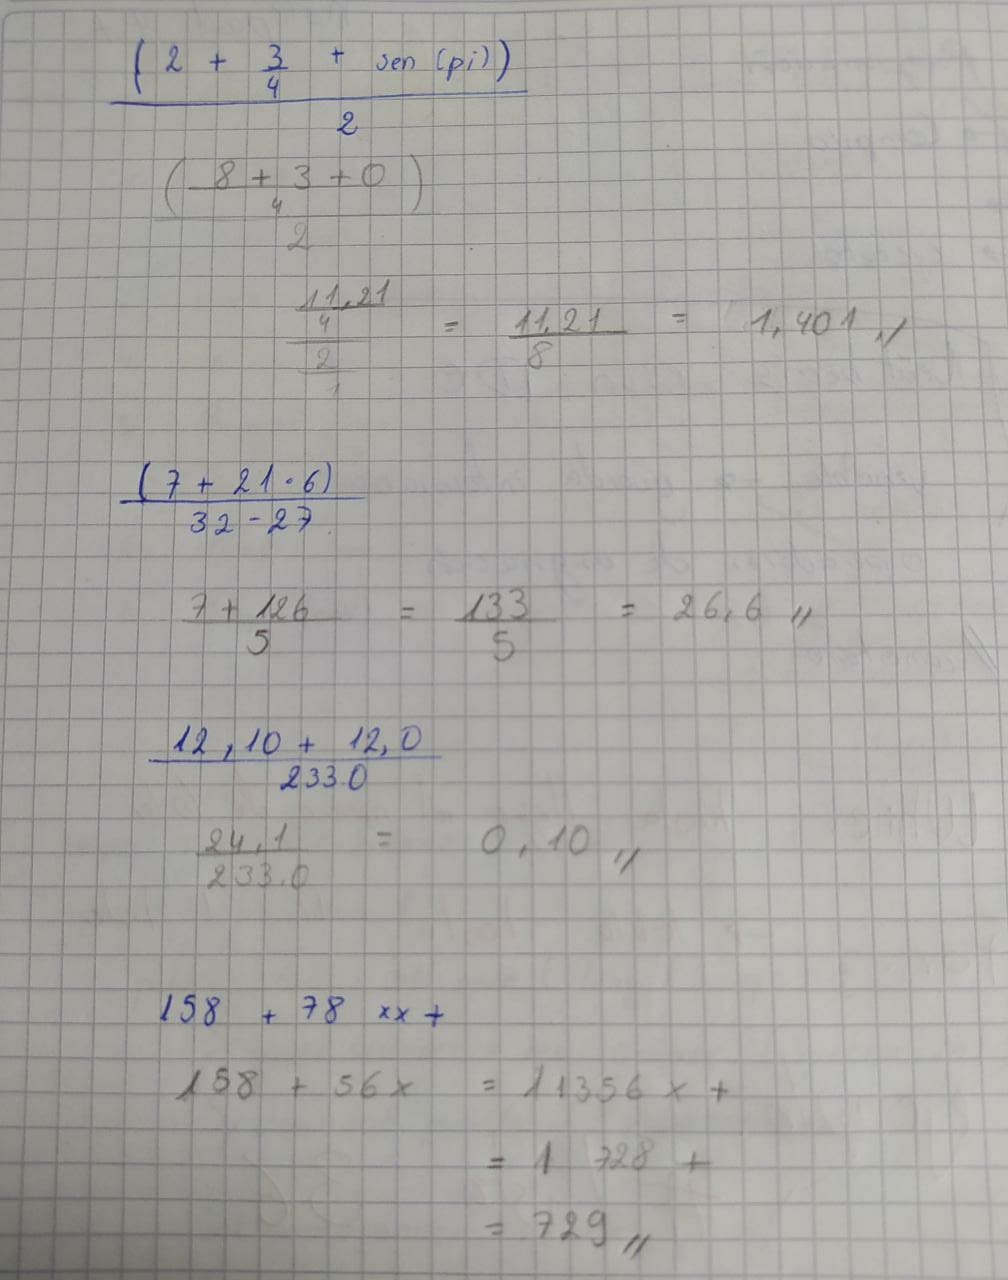 (2 + 3/4 + sen (pi))
2
(8 + 3 + 0)
4
2
11,21/4 / 2/1 = 11,21/8 = 1,401 〃
(7 + 21 · 6)
32 - 27
7 + 126 / 5 = 133/5 = 26,6 〃
12,10 + 12,0
233.0
24,1 / 233.0 = 0,10 〃
158 + 78 xx +
158 + 56 x = 11356 x +
= 1 728 +
= 729 〃